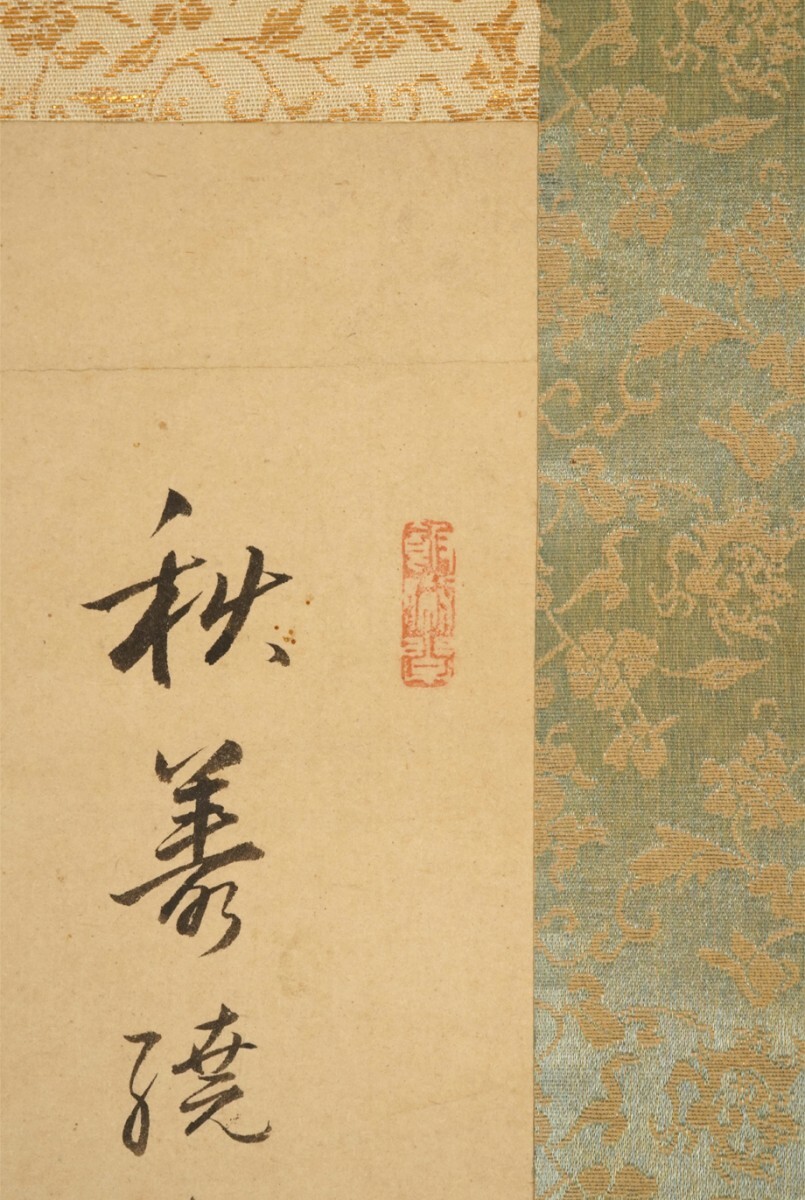 秋叢繞